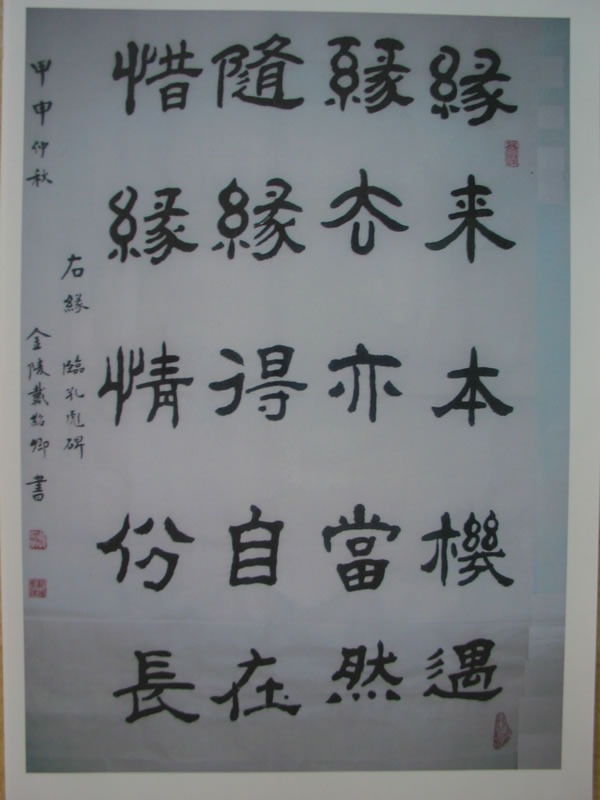 緣来本機遇
緣去亦當然
隨緣得自在
惜緣情份長
右緣 臨孔彪碑
甲申仲秋 金陵戴紹卿書